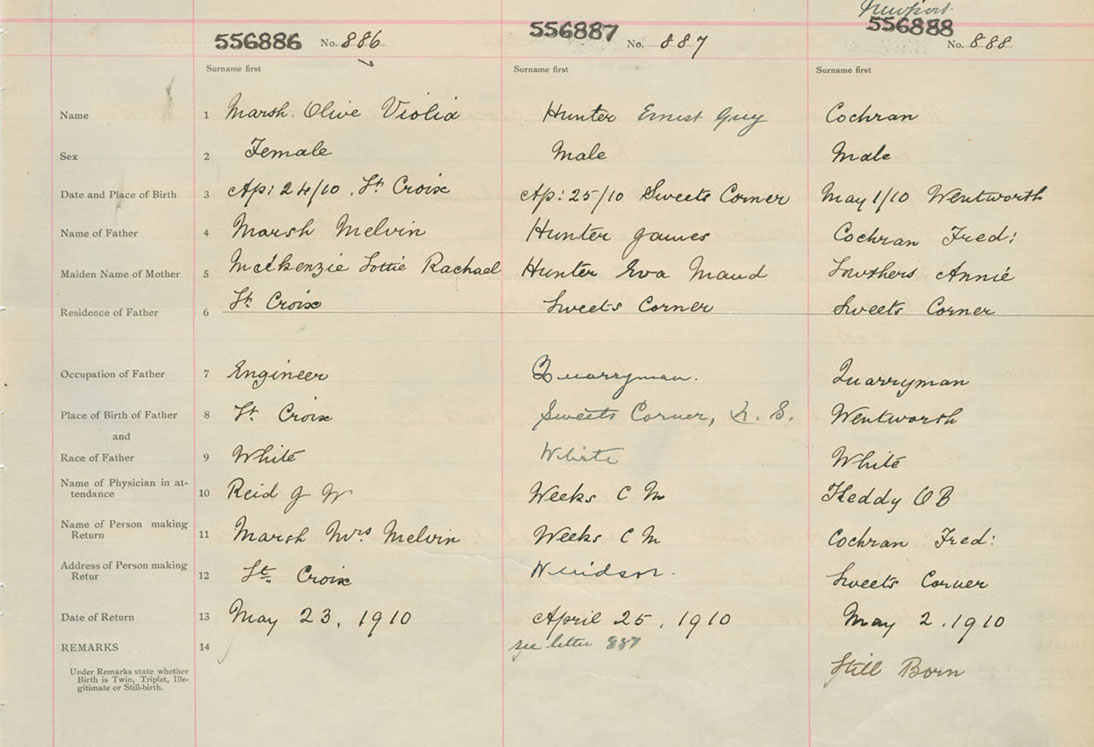 Newport.
556886 No. 886 556887 No. 887 556888 No. 888
Surname first Surname first Surname first
Name 1 Marsh. Olive Violia Hunter Ernest Guy Cochran
Sex 2 Female Male Male
Date and Place of Birth 3 Ap: 24/10. St Croix Ap: 25/10 Sweets Corner May 1/10 Wentworth
Name of Father 4 Marsh Melvin Hunter James Cochran Fred:
Maiden Name of Mother 5 McKenzie Lottie Rachael Hunter Eva Maud Lowthers Annie
Residence of Father 6 St Croix Sweets Corner Sweets Corner
Occupation of Father 7 Engineer Quarryman. Quarryman
Place of Birth of Father 8 St Croix Sweets Corner, N. S. Wentworth
and
Race of Father 9 White White White
Name of Physician in at-
tendance 10 Reid J W Weeks C M Keddy O B
Name of Person making
Return 11 Marsh Mrs Melvin Weeks C M Cochran Fred:
Address of Person making
Retur 12 St. Croix Windsor. Sweets Corner
Date of Return 13 May 23, 1910 April 25, 1910 May 2. 1910
REMARKS 14 see letter 887
Under Remarks state whether
Birth is Twin, Triplet, Ille-
gitimate or Still-birth. Still Born